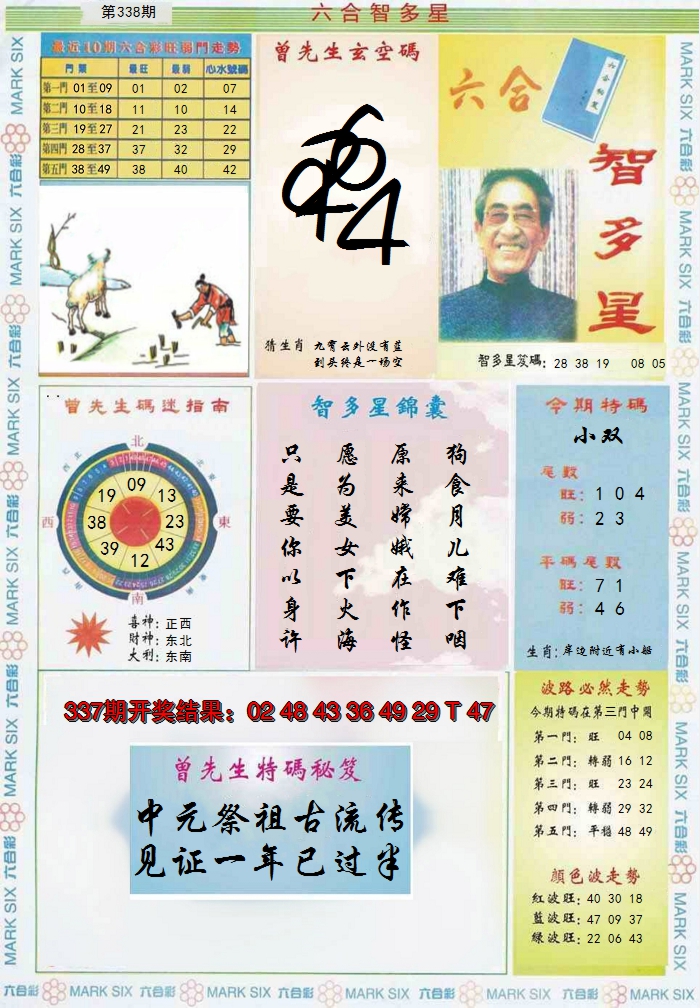 第338期
六合智多星
最近10期六合彩旺弱門走勢
門類 最旺 最弱 心水號碼
第一門 01至09 01 02 07
第二門 10至18 11 10 14
第三門 19至27 21 23 22
第四門 28至37 37 32 29
第五門 38至49 38 40 42
曾先生玄空碼
猜生肖 九霄云外没有蓝
到头终是一场空
六合
智多星
智多星笈碼: 28 38 19 08 05
曾先生碼迷指南
北
西
東
南
09
13
23
43
12
39
38
19
喜神: 正西
財神: 东北
大利: 东南
智多星錦囊
狗食月儿难下咽
原来嫦娥在作怪
愿为美女下火海
只是要你以身许
今期特碼
小双
尾數
旺: 1 0 4
弱: 2 3
平碼尾數
旺: 7 1
弱: 4 6
生肖: 岸边附近有小船
337期开奖结果：02 48 43 36 49 29 T 47
曾先生特碼秘笈
中元祭祖古流传
见证一年已过半
波路必然走勢
今期特碼在第三門中開
第一門: 旺 04 08
第二門: 轉弱 16 12
第三門: 旺 23 24
第四門: 轉弱 29 32
第五門: 平穩 48 49
顏色波走勢
紅波旺: 40 30 18
藍波旺: 47 09 37
綠波旺: 22 06 43
六合彩 MARK SIX 六合彩 MARK SIX 六合彩 MARK SIX 六合彩 MARK SIX 六合彩